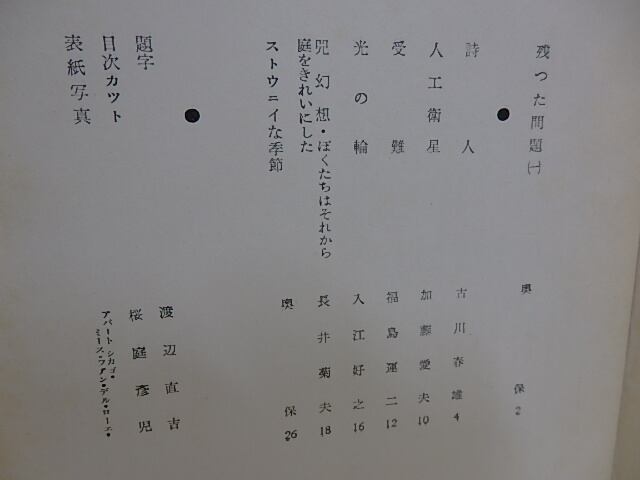 残つた問題㈠ 奥 保 2
●
詩人 古川春雄 4
人工衛星 加藤愛夫 10
受難 福島運二 12
光の輪 入江好之 16
兇幻想・ぼくたちはそれから
庭をきれいにした 長井菊夫 18
ストウニイな季節 奥 保 26
●
題字 渡辺直吉
目次カツト 桜庭彦児
表紙写真 アパート シカゴ・
ミース・ヴアン・デル・ローエ・